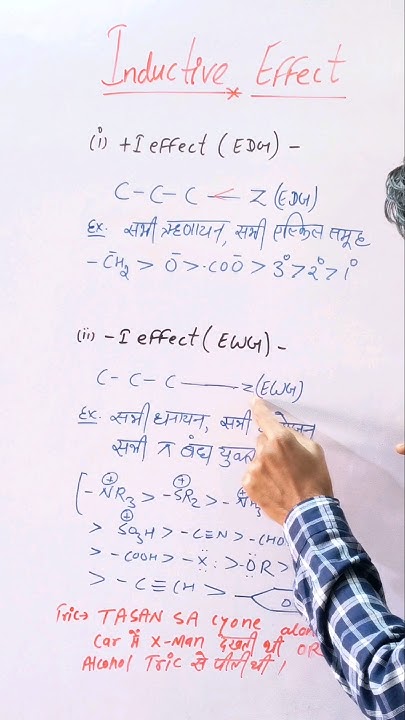 Inductive Effect
(i) +I effect (EDG) -
C-C-C ← Z (EDG)
Ex. सभी ऋणायन, सभी एल्किल समूह
-C̄H₂ > Ō > -COŌ > 3° > 2° > 1°
(ii) -I effect (EWG) -
C-C-C — Z (EWG)
Ex. सभी धनायन, सभी
सभी π बंध
[-N⊕R₃ > -S⊕R₂ > -N⊕H₃
> S⊕O₃H > -C≡N > -CHO
> -COOH > -X > -OR >
> -C≡CH >
Tric→ TASAN SA Cyone
Car में X-Man देखती थी OR
Alcohol Tric से पीती थी।